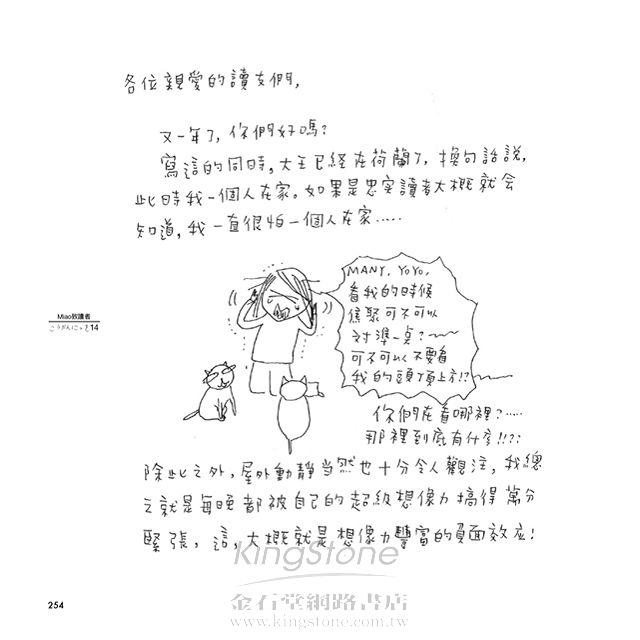 各位親愛的讀友們，
又一年了，你們好嗎？
寫這的同時，大王已経在荷蘭了，換句話說，
此時我一個人在家。如果是忠実讀者大概就会
知道，我一直很怕一個人在家.....
MANY, YOYO,
看我的時候
焦聚可不可以
対準一点？
可不可以不要看
我的頭頂上方!?
你們在看哪裡？.....
那裡到底有什麼!!??
Miao致讀者
こうがんにっき14
除此之外，屋外動靜当然也十分令人觀注，我總
之就是每晚都被自己的超級想像力搞得萬分
緊張，這，大概就是想像力豐富的負面效应！
KingStone
金石堂網路書店
www.kingstone.com.tw
254